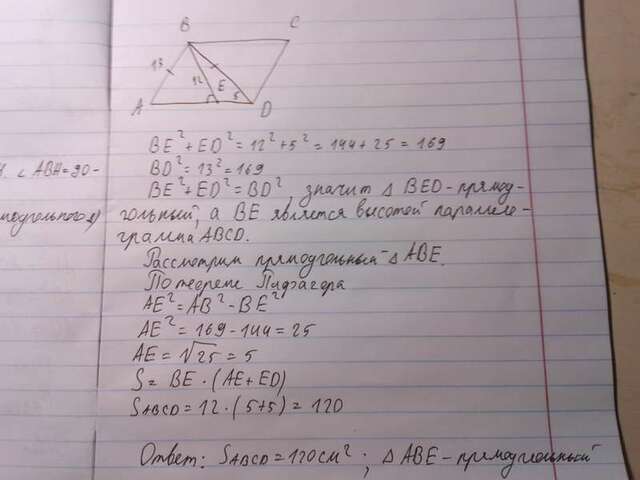 B C
13 12 E 5
A D
BE² + ED² = 12² + 5² = 144 + 25 = 169
BD² = 13² = 169
BE² + ED² = BD² значит △ BED - прямоу-
гольный, а BE является высотой паралле-
грамма ABCD.
Рассмотрим прямоугольный △ ABE.
По теореме Пифагора
AE² = AB² - BE²
AE² = 169 - 144 = 25
AE = √25 = 5
S = BE · (AE + ED)
SABCD = 12 · (5+5) = 120
Ответ: SABCD = 120 см² ; △ ABE - прямоугольный
∠ ABH = 90 -